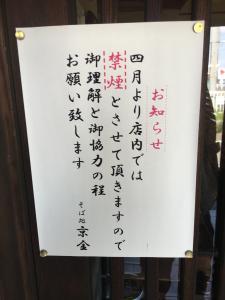 お知らせ
四月より店内では
禁煙とさせて頂きますので
御理解と御協力の程
お願い致します
そば処 京金